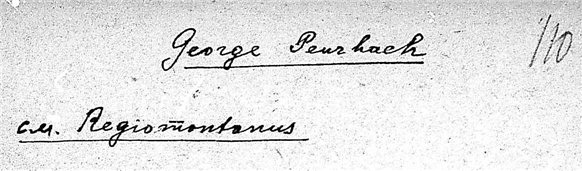 George Peurbach 110
см. Regiomontanus